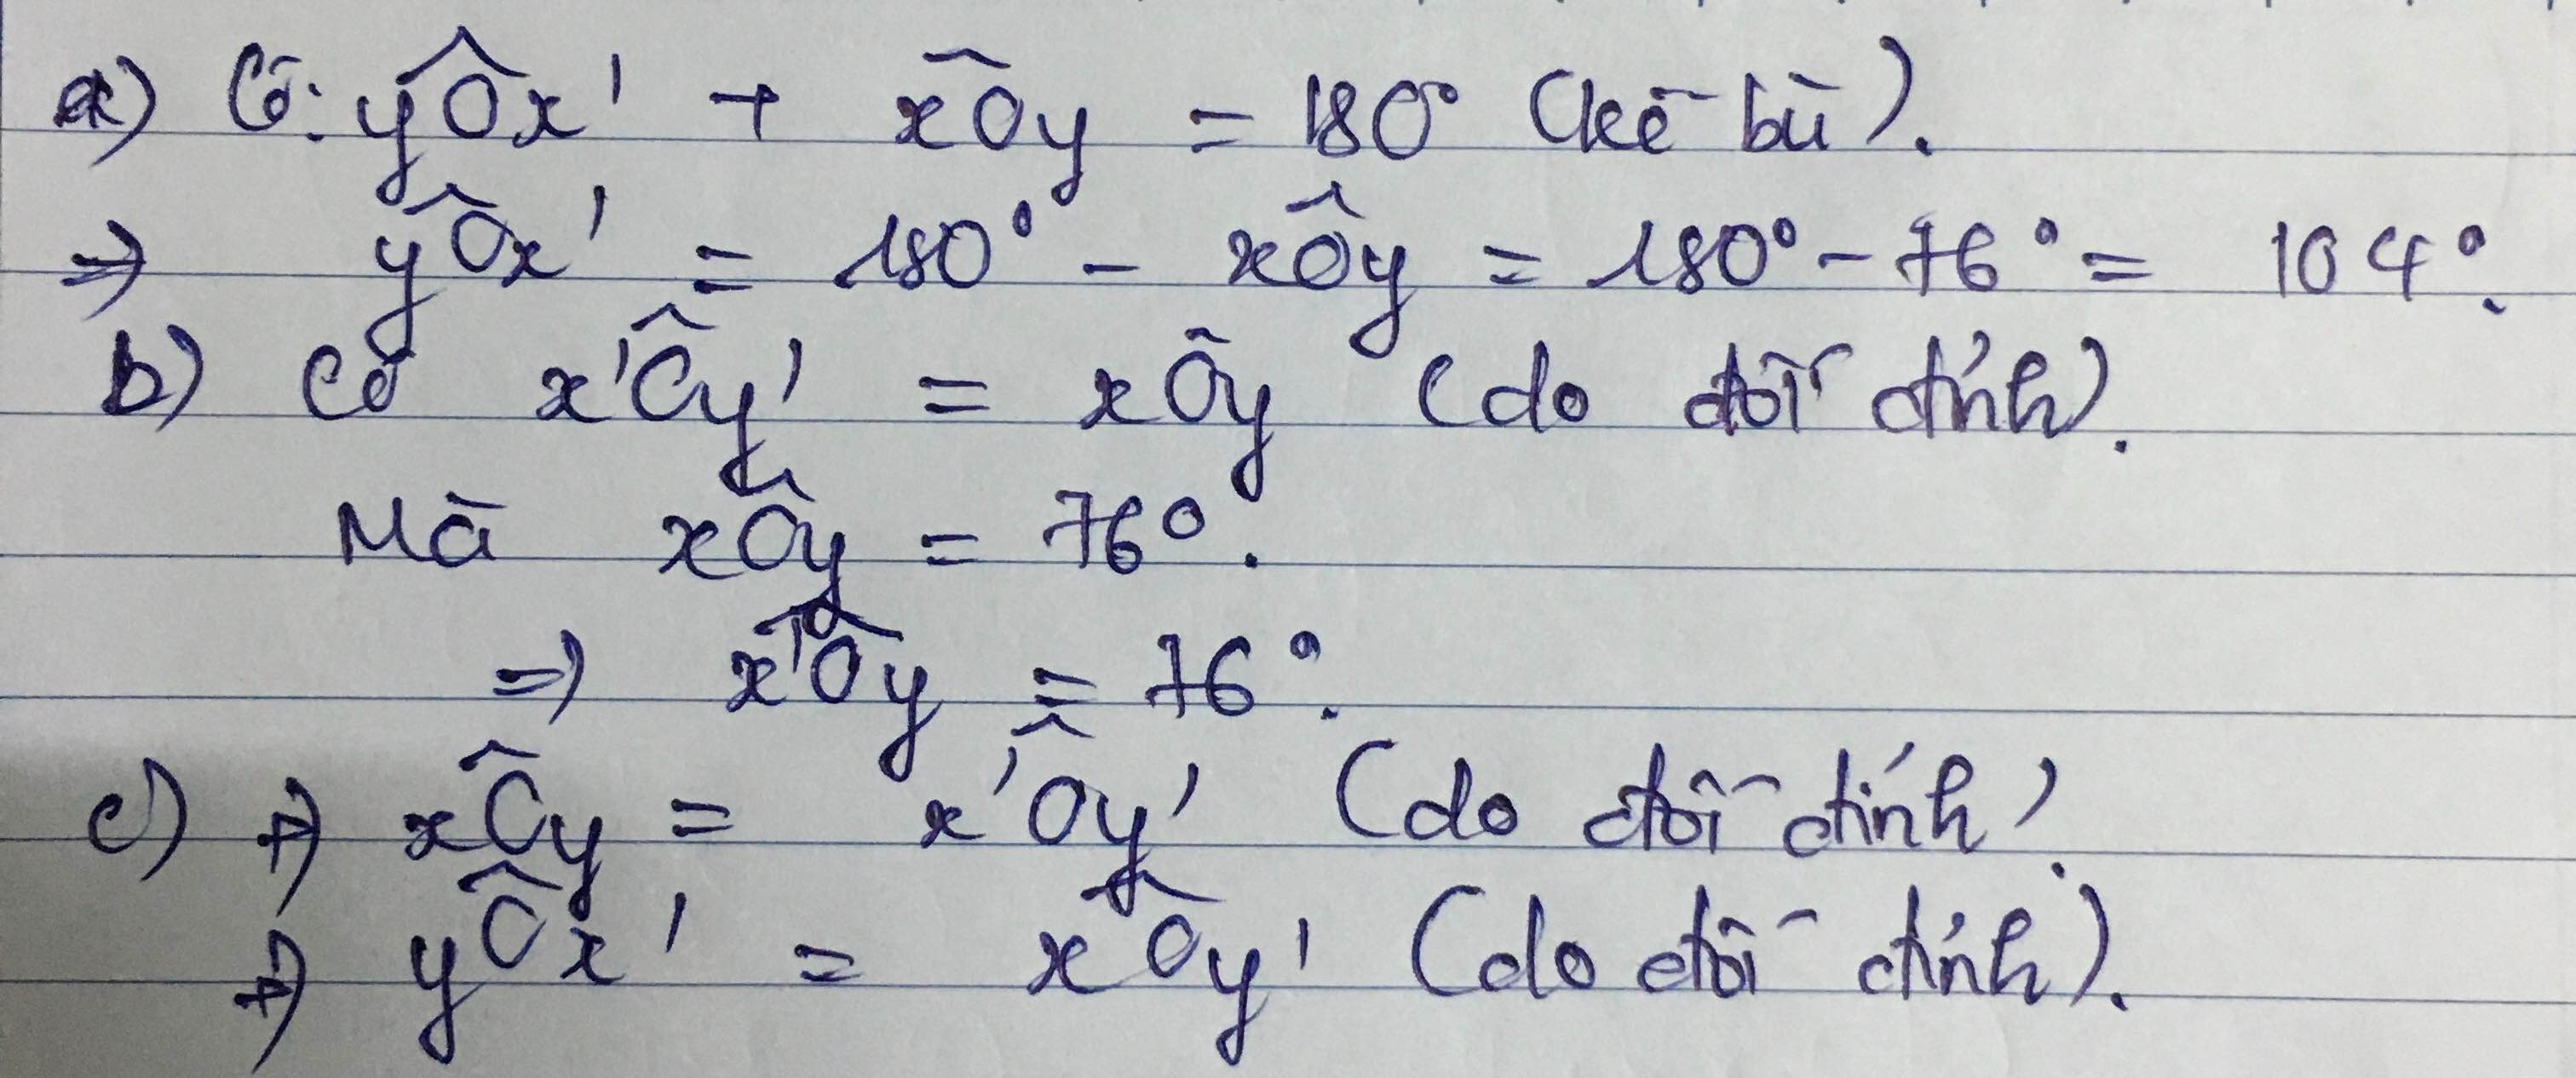 a) Có: yÔx' + xÔy = 180° (kề bù).
=> yÔx' = 180° - xÔy = 180° - 76° = 104°.
b) Có x'Ôy' = xÔy (do đối đỉnh).
Mà xÔy = 76°.
=> x'Ôy = 76°.
c) +) xÔy = x'Ôy' (do đối đỉnh).
+) yÔx' = xÔy' (do đối đỉnh).